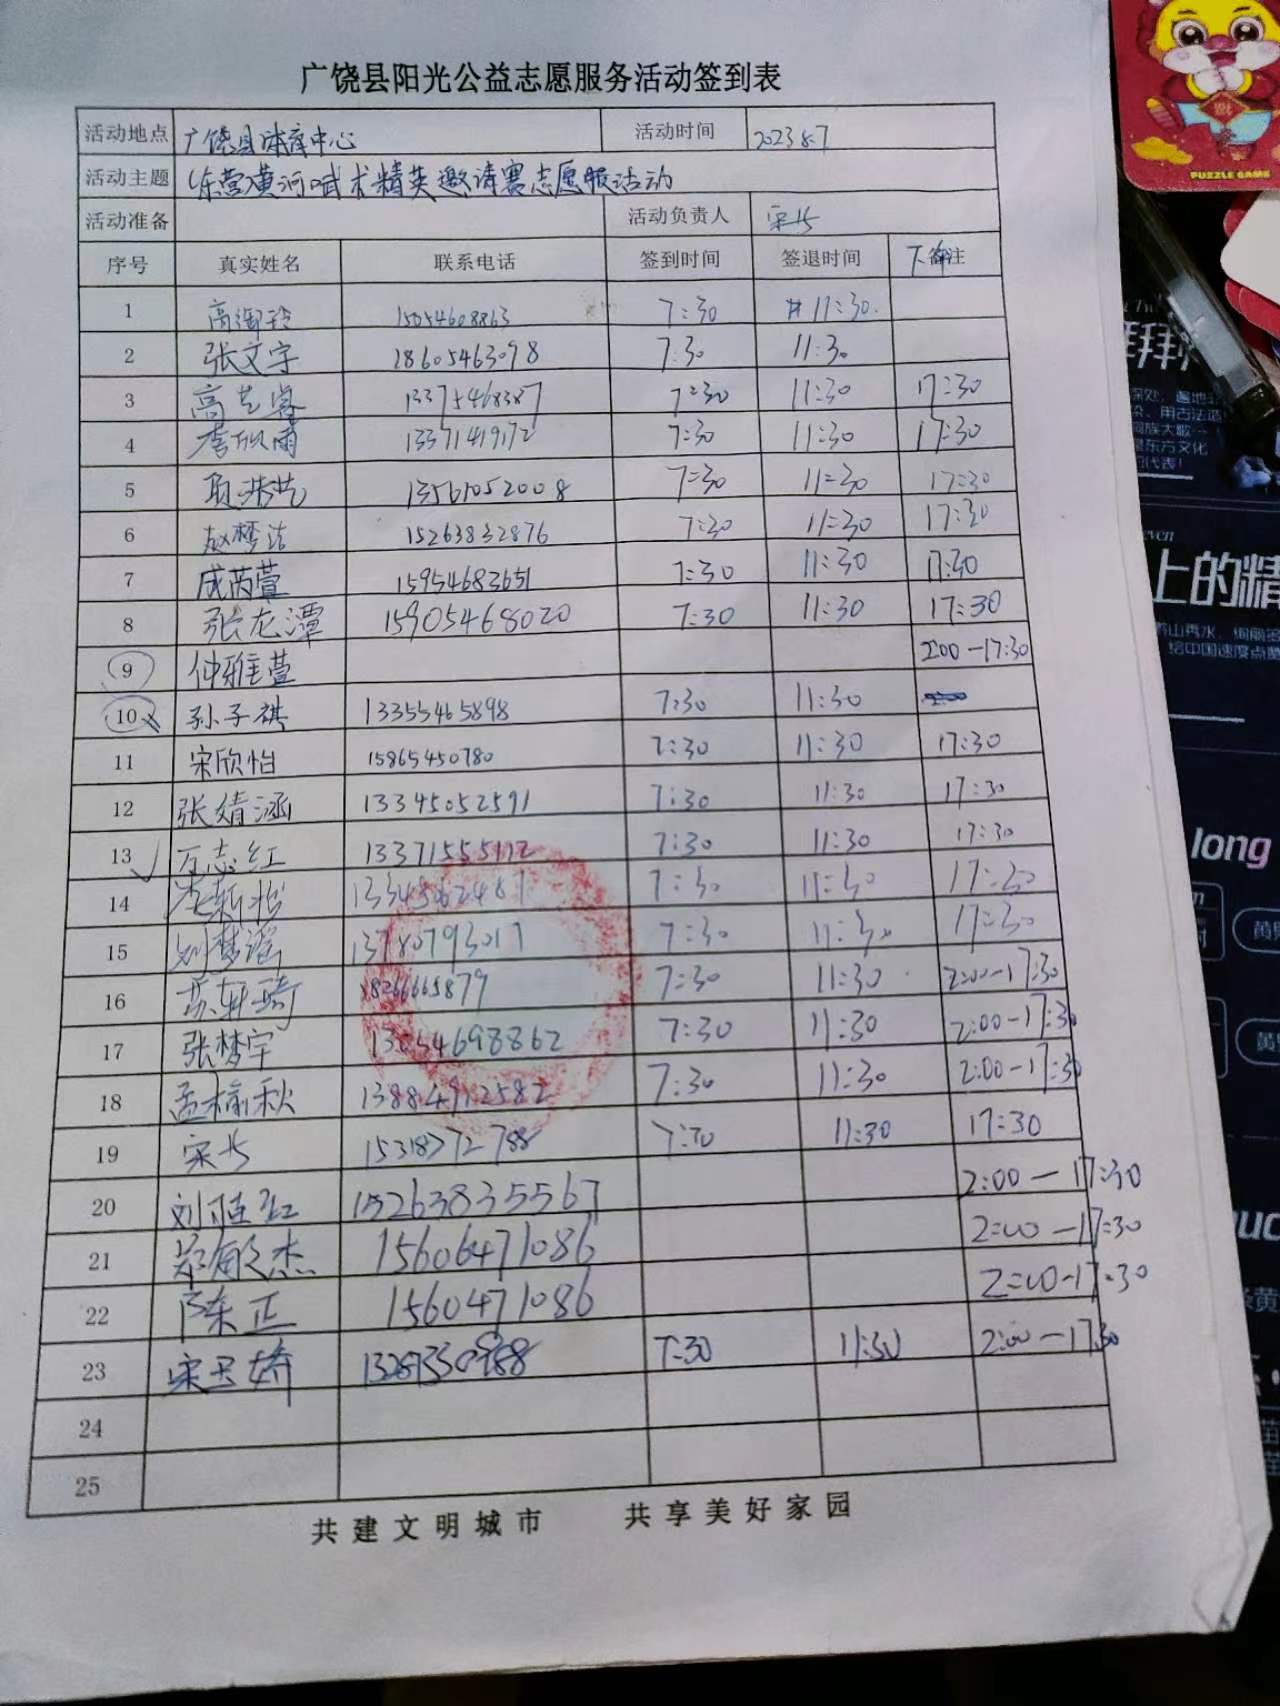 广饶县阳光公益志愿服务活动签到表
活动地点 广饶县体育中心 活动时间 2023.8.7
活动主题 东营黄河武术精英邀请赛志愿服活动
活动准备 活动负责人
序号 真实姓名 联系电话 签到时间 签退时间 下午备注
1 15054608863 7:30 11:30.
2 张文字 18605463098 7:30 11:30
3 高艺睿 13375468387 7:30 11:30 17:30
4 李欣雨 13371419172 7:30 11:30 17:30
5 13561052008 7:30 11:30 17:30
6 赵梦洁 15263832876 7:30 11:30 17:30
7 成芮萱 15954683651 7:30 11:30 17:30
8 张龙潭 15905468020 7:30 11:30 17:30
9 仲雅萱 2:00-17:30
10 孙子祺 13355465898 7:30 11:30
11 宋欣怡 15865450780 7:30 11:30 17:30
12 张婧涵 13345052591 7:30 11:30 17:30
13 万志红 7:30 11:30 17:30
14 7:30 11:30 17:30
15 刘梦瑶 13780793017 7:30 11:30 17:30
16 7:30 11:30 2:00-17:30
17 张梦宇 7:30 11:30 2:00-17:30
18 孟榆秋 13884912582 7:30 11:30 2:00-17:30
19 15318772788 7:30 11:30 17:30
20 15263835567 2:00-17:30
21 郑敏杰 15606471086 2:00-17:30
22 陈正 1560471086 2:00-17:30
23 宋玉娇 7:30 11:30 2:00-17:30
24
25
共建文明城市 共享美好家园
PUZZLE GAME
上的精
long